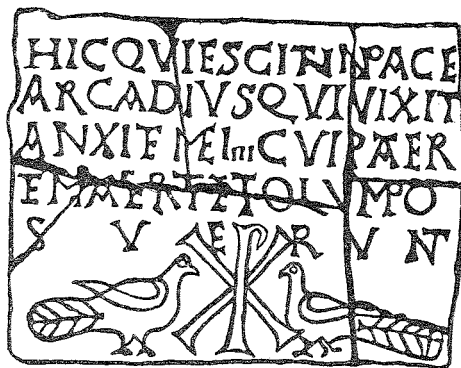 HICQVIESCITINPACE
ARCADIVSQVIVIXIT
ANXIEMEIIIICVIPAER
EMMERTETOLVMPO
SVERVNT